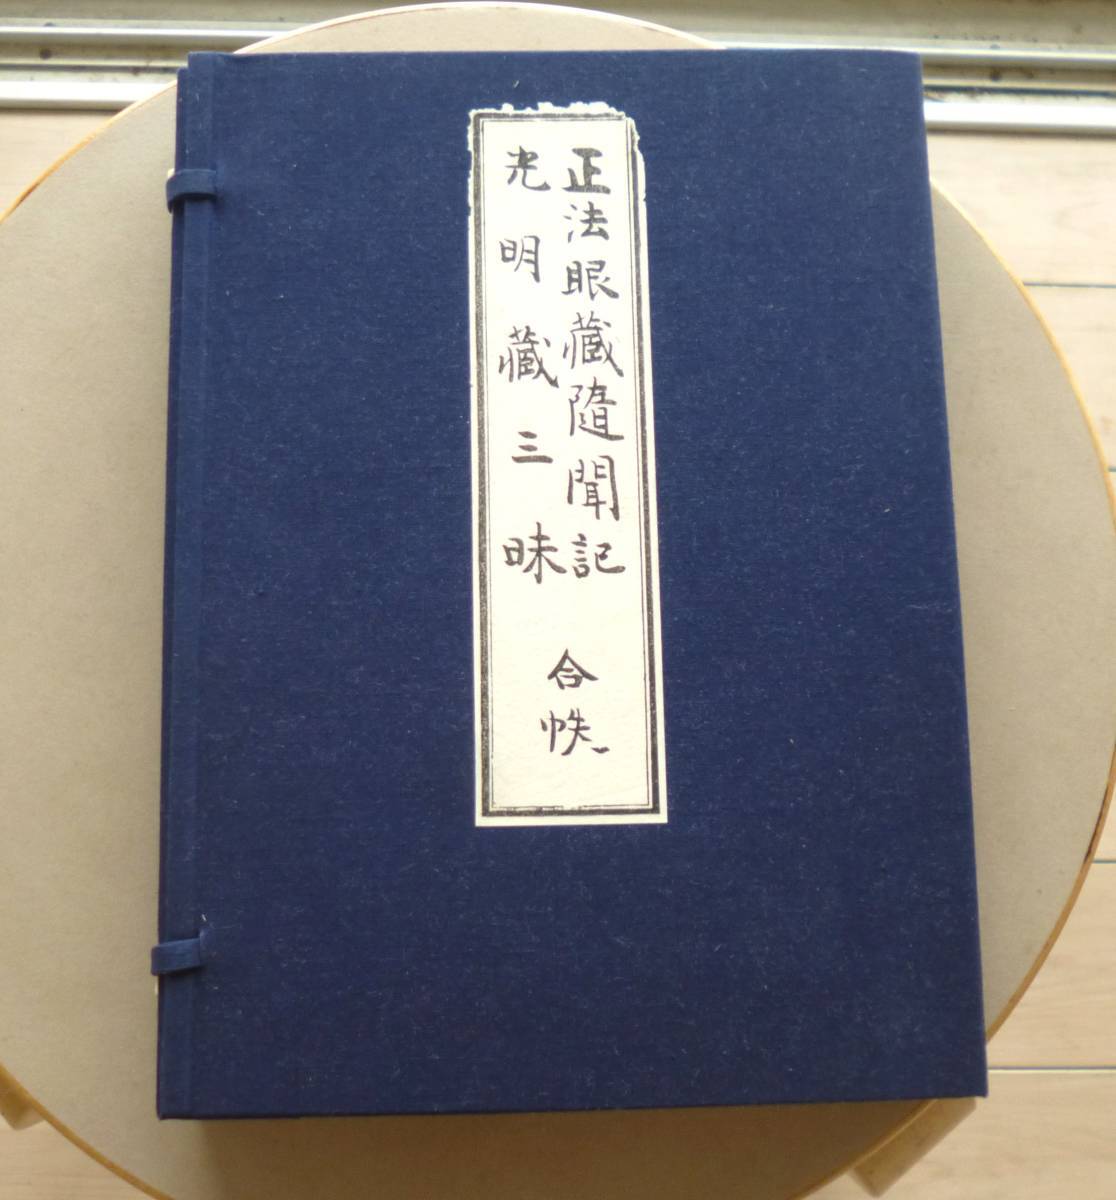 正法眼藏隨聞記
光明藏三昧
合帙